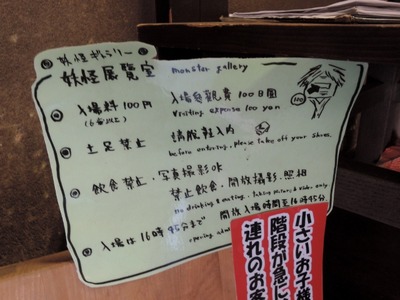 妖怪ギャラリー
妖怪展覧室 monster gallery
入場料100円 入場自観費100日圓
(6歳以上) visiting expense 100 yen
100
土足禁止 請脱鞋入内
before entering, please take off your shoes
飲食禁止・写真撮影OK
禁止飲食・開放攝影・照相
no drinking & eating. taking picture & video only
入場は16時45分まで 開放入場時間至16時45分.
opening
小さいお子様
階段が急に
連れのお客